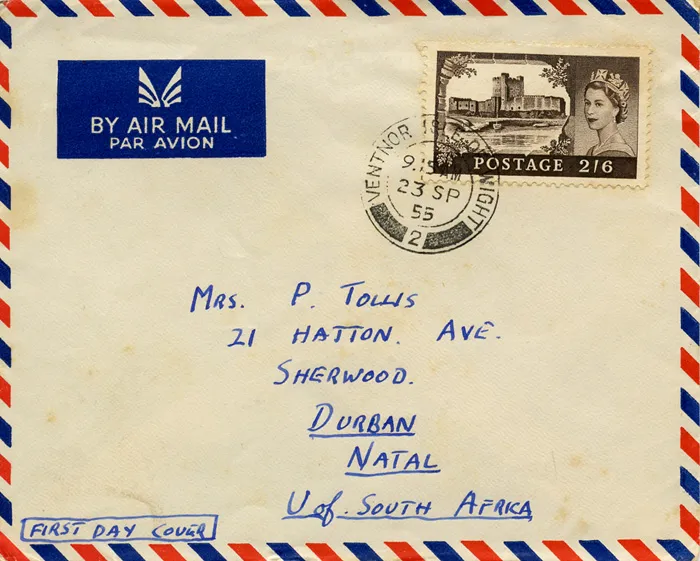 BY AIR MAIL
PAR AVION
POSTAGE 2/6
VENTNOR ISLE OF WIGHT
9.15 AM
23 SP
55
2
MRS. P. TOLLIS
21 HATTON. AVE.
SHERWOOD.
DURBAN
NATAL
U of. SOUTH AFRICA
FIRST DAY COVER